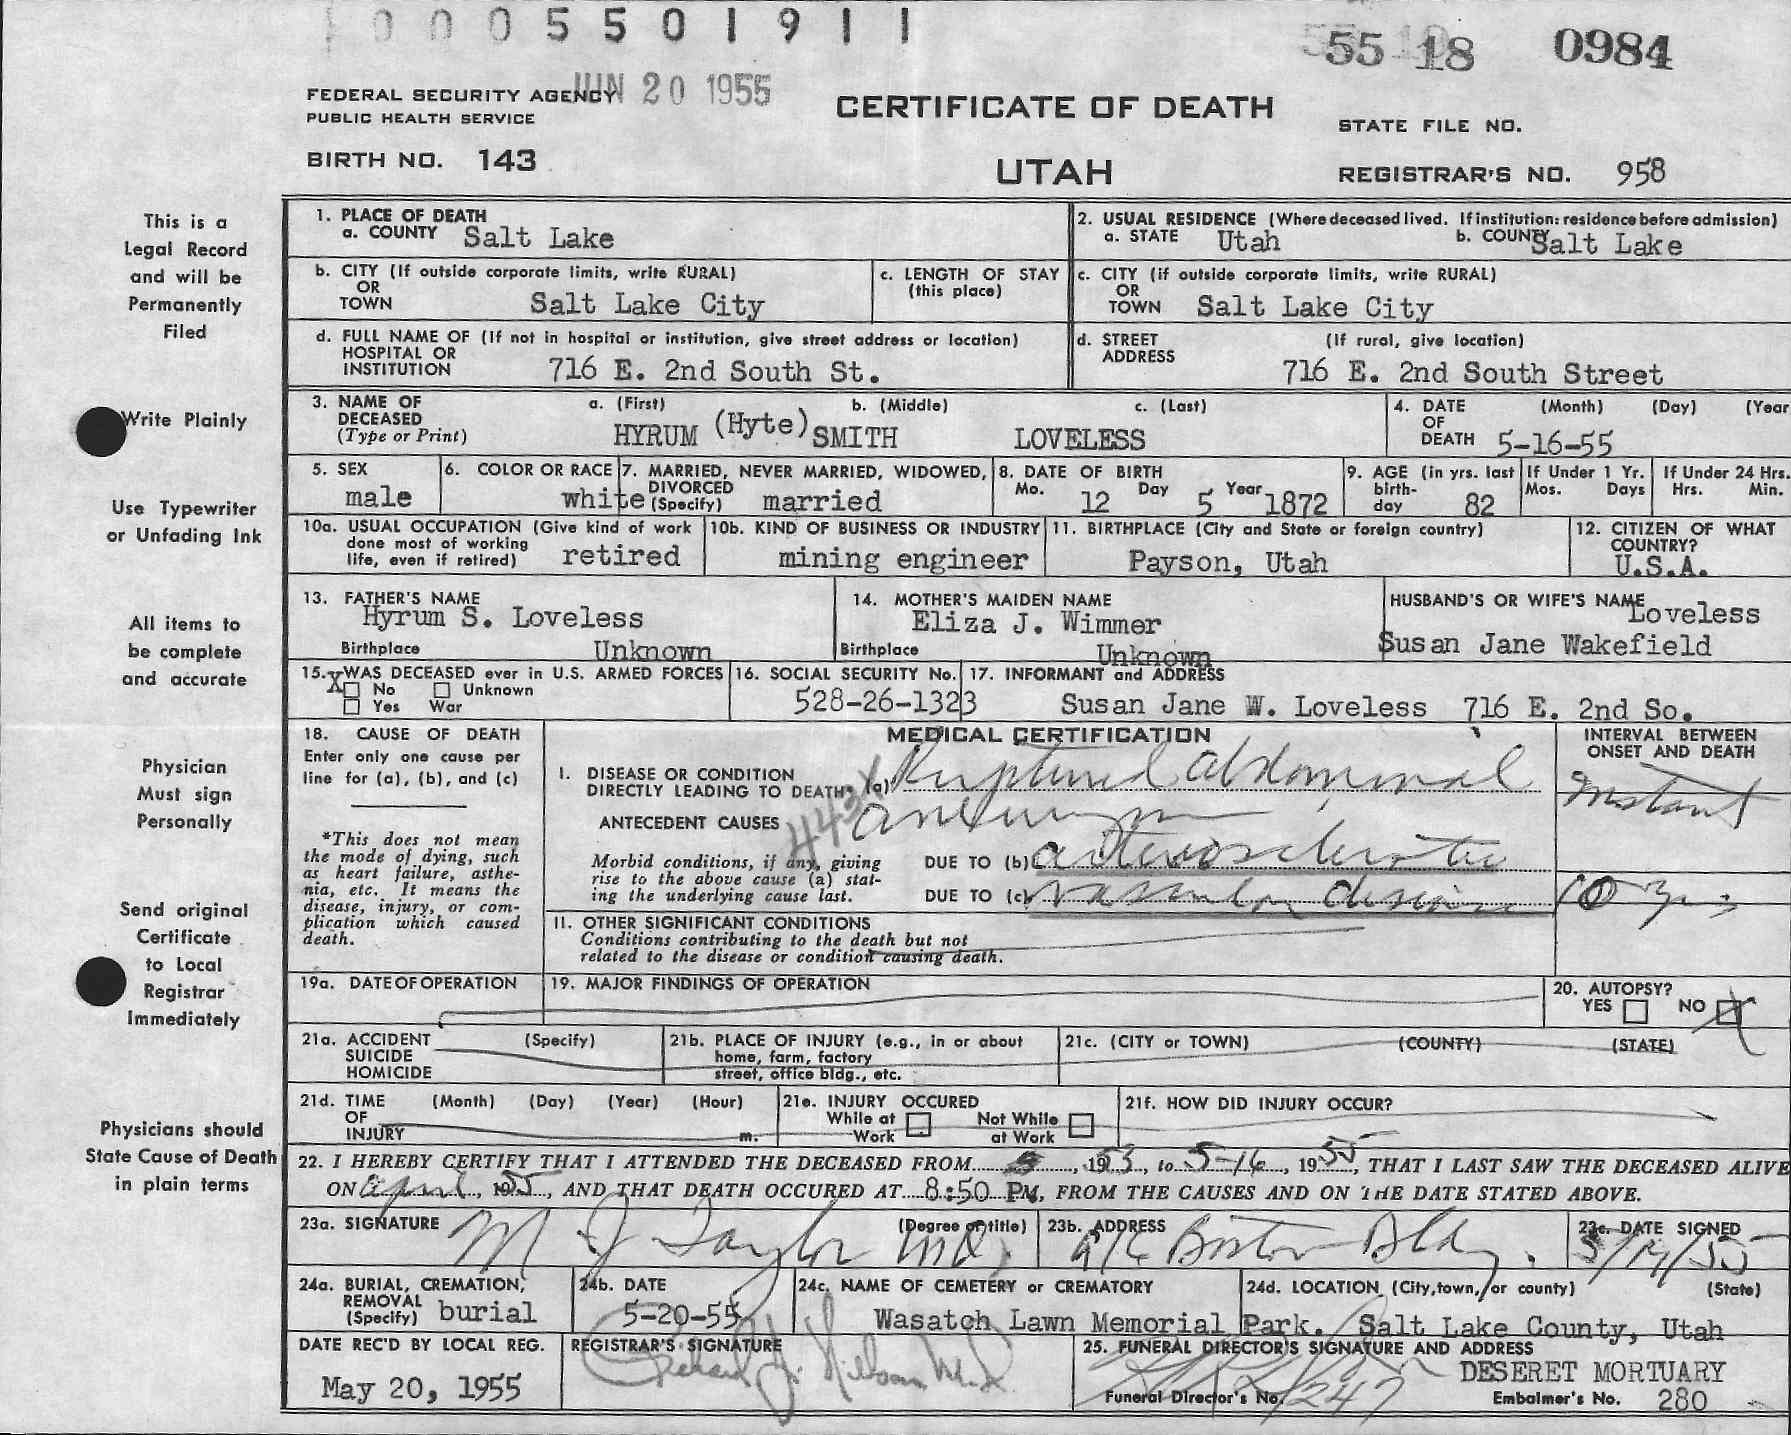 0005501911
55 18 0984
JUN 20 1955
FEDERAL SECURITY AGENCY
PUBLIC HEALTH SERVICE
CERTIFICATE OF DEATH
STATE FILE NO.
BIRTH NO. 143
UTAH
REGISTRAR'S NO. 958
This is a
Legal Record
and will be
Permanently
Filed
Write Plainly
Use Typewriter
or Unfading Ink
All items to
be complete
and accurate
Physician
Must sign
Personally
Send original
Certificate
to Local
Registrar
Immediately
Physicians should
State Cause of Death
in plain terms
1. PLACE OF DEATH
a. COUNTY Salt Lake
2. USUAL RESIDENCE (Where deceased lived. If institution: residence before admission)
a. STATE Utah b. COUNTY Salt Lake
b. CITY (If outside corporate limits, write RURAL)
OR
TOWN Salt Lake City
c. LENGTH OF STAY
(this place)
c. CITY (if outside corporate limits, write RURAL)
OR
TOWN Salt Lake City
d. FULL NAME OF (If not in hospital or institution, give street address or location)
HOSPITAL OR
INSTITUTION 716 E. 2nd South St.
d. STREET (If rural, give location)
ADDRESS
716 E. 2nd South Street
3. NAME OF
DECEASED
(Type or Print)
a. (First) b. (Middle) c. (Last)
HYRUM (Hyte) SMITH LOVELESS
4. DATE (Month) (Day) (Year
OF
DEATH 5-16-55
5. SEX
male
6. COLOR OR RACE
white
7. MARRIED, NEVER MARRIED, WIDOWED,
DIVORCED
(Specify) married
8. DATE OF BIRTH
Mo. 12 Day 5 Year 1872
9. AGE (in yrs. last
birth-
day 82
If Under 1 Yr.
Mos. Days
If Under 24 Hrs.
Hrs. Min.
10a. USUAL OCCUPATION (Give kind of work
done most of working
life, even if retired) retired
10b. KIND OF BUSINESS OR INDUSTRY
mining engineer
11. BIRTHPLACE (City and State or foreign country)
Payson, Utah
12. CITIZEN OF WHAT
COUNTRY?
U.S.A.
13. FATHER'S NAME
Hyrum S. Loveless
Birthplace Unknown
14. MOTHER'S MAIDEN NAME
Eliza J. Wimmer
Birthplace Unknown
HUSBAND'S OR WIFE'S NAME
Loveless
Susan Jane Wakefield
15. WAS DECEASED ever in U.S. ARMED FORCES
X No Unknown
Yes War
16. SOCIAL SECURITY No.
528-26-1323
17. INFORMANT and ADDRESS
Susan Jane W. Loveless 716 E. 2nd So.
18. CAUSE OF DEATH
Enter only one cause per
line for (a), (b), and (c)
*This does not mean
the mode of dying, such
as heart failure, asthe-
nia, etc. It means the
disease, injury, or com-
plication which caused
death.
MEDICAL CERTIFICATION
INTERVAL BETWEEN
ONSET AND DEATH
I. DISEASE OR CONDITION
DIRECTLY LEADING TO DEATH* (a) Ruptured abdominal
Instant
ANTECEDENT CAUSES aneurysm
Morbid conditions, if any, giving
rise to the above cause (a) stat-
ing the underlying cause last.
DUE TO (b) arteriosclerotic
DUE TO (c) vascular disease 10 yrs
II. OTHER SIGNIFICANT CONDITIONS
Conditions contributing to the death but not
related to the disease or condition causing death.
19a. DATE OF OPERATION
19. MAJOR FINDINGS OF OPERATION
20. AUTOPSY?
YES NO X
21a. ACCIDENT (Specify)
SUICIDE
HOMICIDE
21b. PLACE OF INJURY (e.g., in or about
home, farm, factory
street, office bldg., etc.
21c. (CITY or TOWN) (COUNTY) (STATE)
21d. TIME (Month) (Day) (Year) (Hour)
OF
INJURY m.
21e. INJURY OCCURED
While at Work Not While at Work
21f. HOW DID INJURY OCCUR?
22. I HEREBY CERTIFY THAT I ATTENDED THE DECEASED FROM , 1953, to 5-16, 1955, THAT I LAST SAW THE DECEASED ALIVE
ON April, 1955, AND THAT DEATH OCCURED AT 8:50 PM, FROM THE CAUSES AND ON THE DATE STATED ABOVE.
23a. SIGNATURE (Degree or title)
M J Taylor MD
23b. ADDRESS
Boston Bldg.
23c. DATE SIGNED
24a. BURIAL, CREMATION,
REMOVAL
(Specify) burial
24b. DATE
5-20-55
24c. NAME OF CEMETERY or CREMATORY
Wasatch Lawn Memorial Park.
24d. LOCATION (City, town, or county) (State)
Salt Lake County, Utah
DATE REC'D BY LOCAL REG.
May 20, 1955
REGISTRAR'S SIGNATURE
25. FUNERAL DIRECTOR'S SIGNATURE AND ADDRESS
DESERET MORTUARY
Funeral Director's No. 247
Embalmer's No. 280